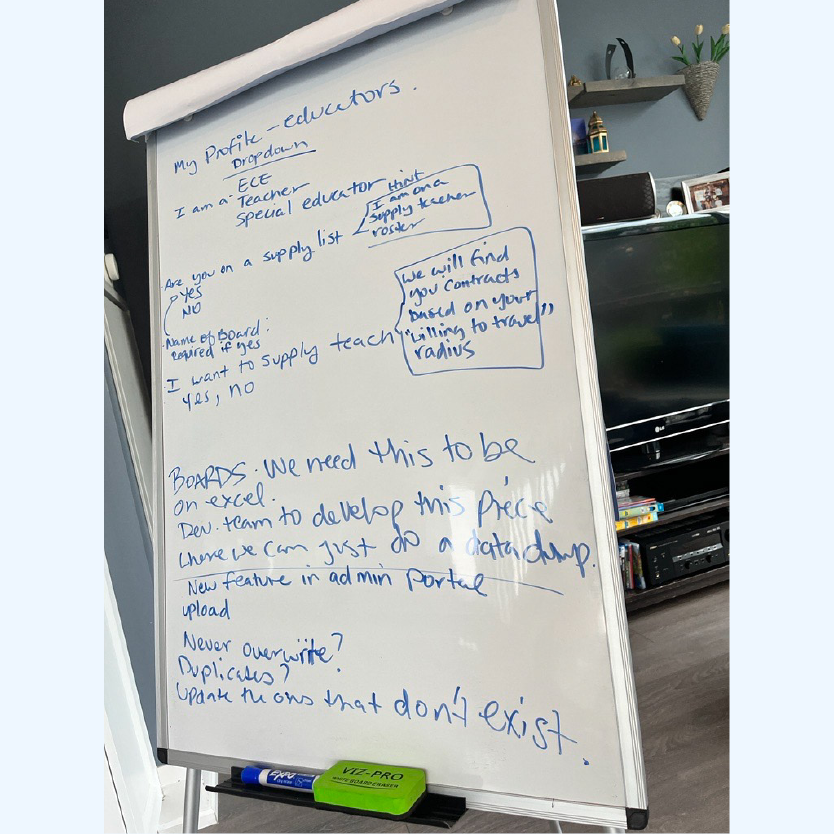 My Profile - educators.
Dropdown
ECE
I am a: Teacher
special educator
hint
I am on a
supply teacher
roster
Are you on a supply list
Yes
NO
Name of Board:
required if yes
I want to supply teach
yes, no
We will find
you contracts
based on your
"willing to travel"
radius
BOARDS. We need this to be
on excel.
Dev. team to develop this piece
where we can just do a data dump.
New feature in admin portal
upload
Never overwrite?
Duplicates?
Update the ons that don't exist.
EXPO
VIZ-PRO
WHITEBOARD ERASER
LG